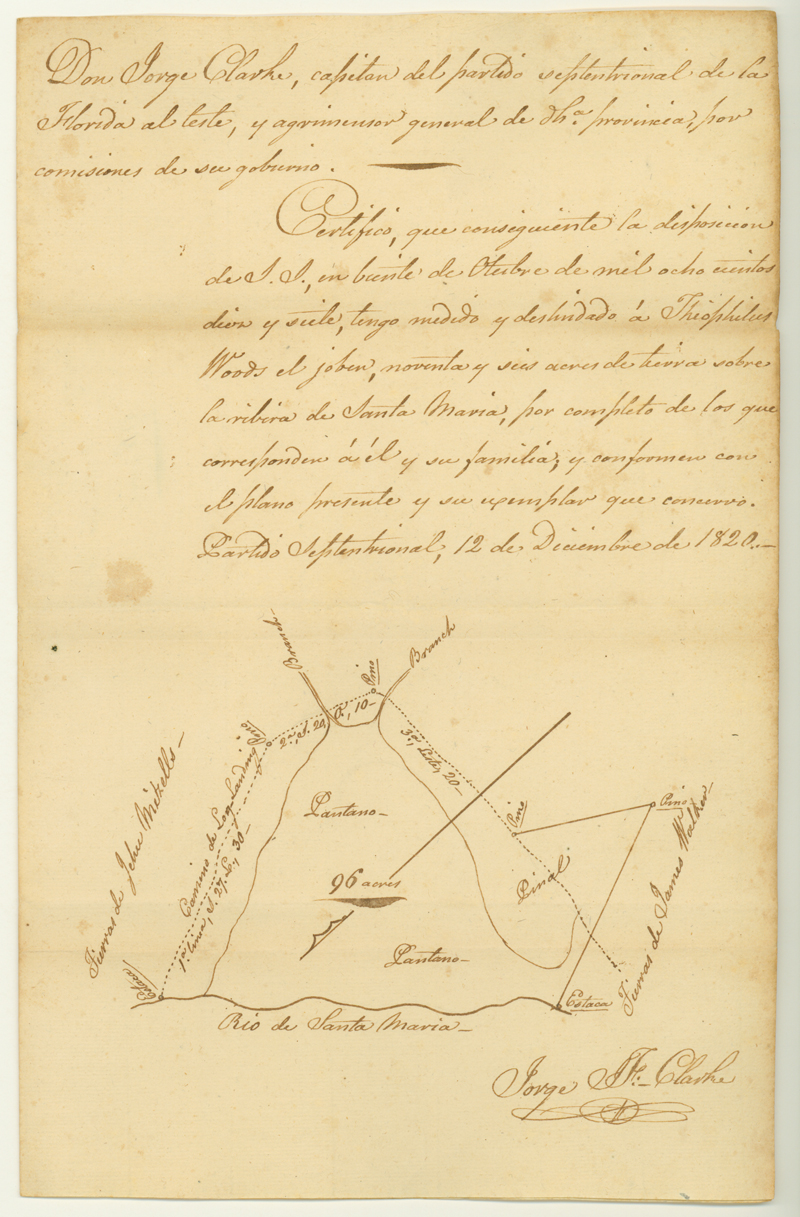 Don Jorge Clarke, capitan del partido septentrional de la
Florida al leste, y agrimensor general de dha. provincia, por
comisiones de su gobierno.
Certifico, que consiguiente la disposicion
de S. S., en biente de Otubre de mil ocho cientos
diez y siete, tengo medido y deslindado á Theophilus
Woods el joben, noventa y seis acres de tierra sobre
la ribira de Santa Maria, por completo de los que
corresponden á él y su familia; y conformen con
el plano presente y su exemplar que concervo.
Partido Septentrional, 12 de Diciembre de 1820.—
Branch—
Branch
Pino
Pino
2a., S. 20, O., 10—
3a., Leste, 20—
Tierras de John Mizells—
Camino de Log-Landing
1a. linea, S. 27, E., 30—
Pantano—
Pino
Pino
96 acres
Pinal
Pantano—
Tierras de James Wm. Walker—
Estaca
Estaca
Rio de Santa Maria—
Jorge J. F. Clarke